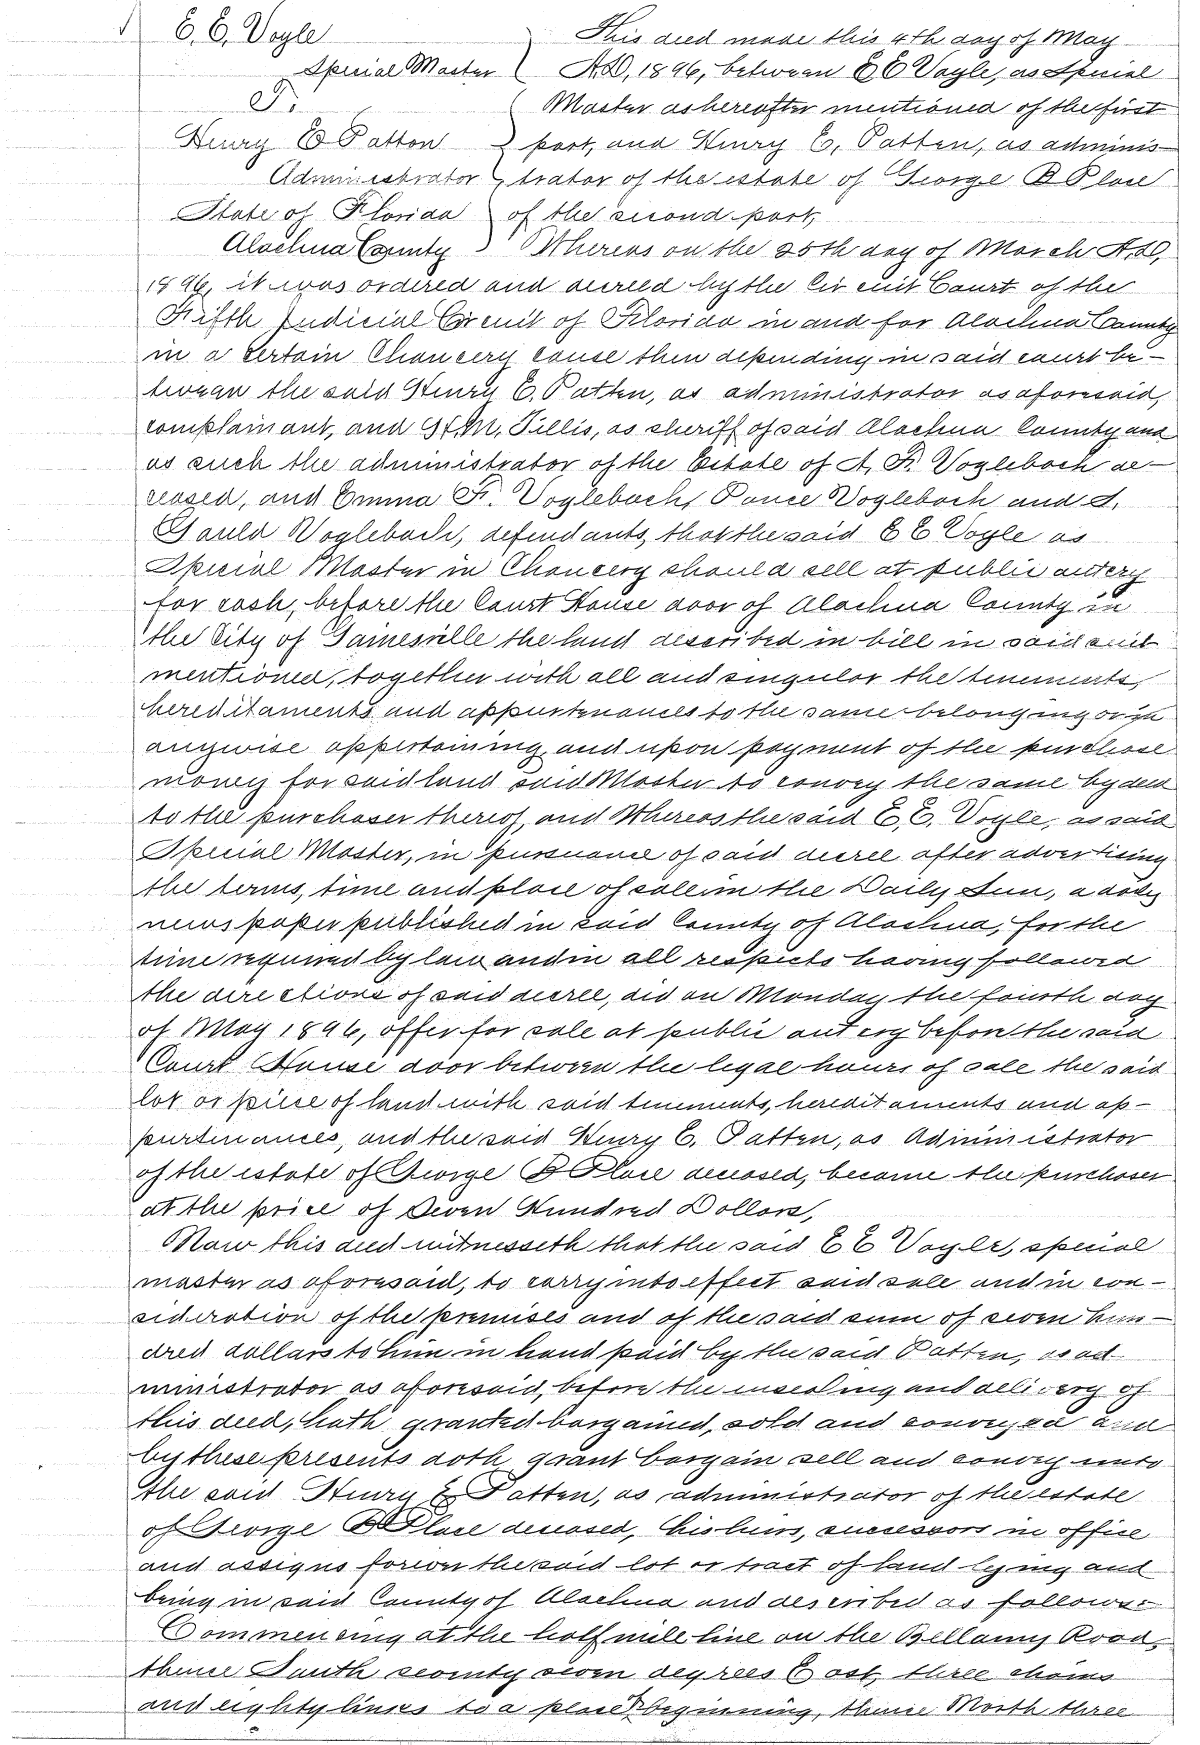 E. E. Voyle
Special Master
T.
Henry E Patton
Administrator
State of Florida
Alachua County
This deed made this 4th day of May
A.D, 1896, between E E Voyle, as Special
Master as hereafter mentioned of the first
part, and Henry E, Patten, as adminis-
trator of the estate of George B Place
of the second part,
Whereas on the 25th day of March A,D,
1896, it was ordered and decreed by the Circuit Court of the
Fifth Judicial Circuit of Florida in and for Alachua County
in a certain Chancery cause then depending in said court be-
tween the said Henry E. Patten, as administrator as aforesaid,
complainant, and H.M. Tillis, as sheriff of said Alachua County and
as such the administrator of the Estate of A, F. Voglebach de-
ceased, and Emma F. Voglebach, Ponce Voglebach and A.
Gauld Voglebach, defendants, that the said E E Voyle as
Special Master in Chancery should sell at public outcry
for cash, before the Court House door of Alachua County in
the City of Gainesville the land described in bill in said suit
mentioned, together with all and singular the tenements,
hereditaments and appurtenances to the same belonging or in
anywise appertaining, and upon payment of the purchase
money for said land said Master to convey the same by deed
to the purchaser thereof, and Whereas the said E, E. Voyle, as said
Special Master, in pursuance of said decree after advertising
the terms, time and place of sale in the Daily Sun, a daily
newspaper published in said County of Alachua, for the
time required by law and in all respects having followed
the directions of said decree, did on Monday the fourth day
of May 1896, offer for sale at public outcry before the said
Court House door between the legal hours of sale the said
lot or piece of land with said tenements, hereditaments and ap-
purtenances, and the said Henry E. Patten, as Administrator
of the estate of George B Place deceased, became the purchaser
at the price of Seven Hundred Dollars,
Now this deed witnesseth that the said E E Voyle, special
master as aforesaid, to carry into effect said sale and in con-
sideration of the premises and of the said sum of seven hun-
dred dollars to him in hand paid by the said Patten, as ad
ministrator as aforesaid, before the ensealing and delivery of
this deed, hath granted bargained, sold and conveyed and
by these presents doth grant bargain sell and convey unto
the said Henry E Patten, as administrator of the estate
of George B Place deceased, his heirs, successors in office
and assigns forever the said lot or tract of land lying and
being in said County of Alachua and described as follows:-
Commencing at the half mile line on the Bellamy Road,
thence South seventy seven degrees East, three chains
and eighty links to a place of beginning, thence North three